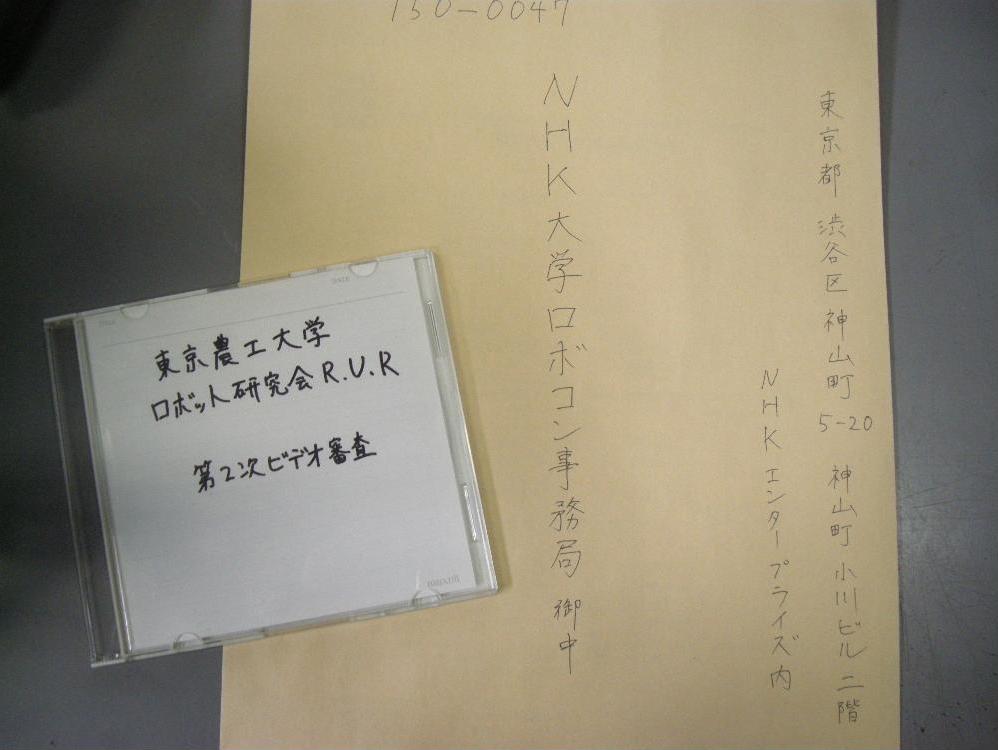 150-0047
東京都 渋谷区 神山町 5-20 神山町 小川ビル 二階
NHK エンタープライズ内
NHK大学ロボコン事務局 御中
東京農工大学
ロボット研究会 R.U.R
第2次ビデオ審査